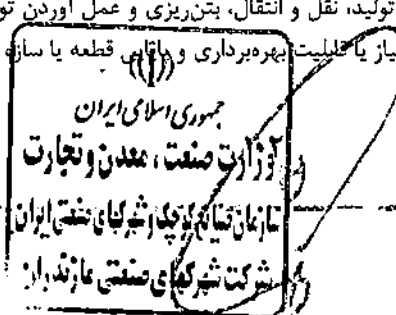 تولید، نقل و انتقال، بتن‌ریزی و عمل آوردن تو
یاز یا قابلیت بهره‌برداری و پایایی قطعه یا سازه
جمهوری اسلامی ایران
وزارت صنعت، معدن و تجارت
سازمان صنایع کوچک و شهرکهای صنعتی ایران
شرکت شهرکهای صنعتی مازندران